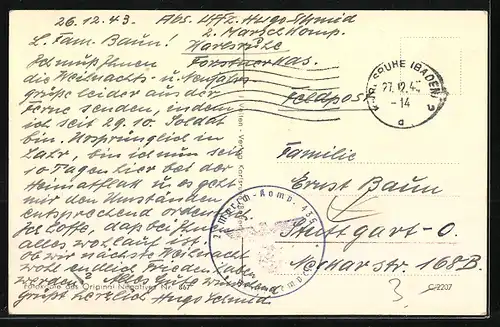 26.12.43. Abs. Uffz. Hugo Schmid
2. Marsch Komp.
L. Fam. Baun! Karlsruhe
Ich muß Ihnen Forstnerkas.
die Weihnachts- u. Neujahrs-
grüße leider aus der
Ferne senden, indem
ich seit 29.10. Soldat
bin. Ursprünglich in
Lahr, bin ich nun seit
10 Tagen hier bei der
Heimatflak u. es geht
mir den Umständen
entsprechend ordentlich.
Ich hoffe, daß bei Ihnen
alles wohlauf ist.
Ob wir nächste Weihnacht
wohl endlich Frieden haben
werden? Alles Gute wünschend
grüßt herzlich Hugo Schmid
Feldpost
KARLSRUHE (BADEN)
27.12.43
-14
a
Familie
Ernst Baun
Stuttgart-O.
Neckarstr. 168B.
3
C/2207
Fotokarte des Original-Negatives Nr.
Verlag
Komp. 435